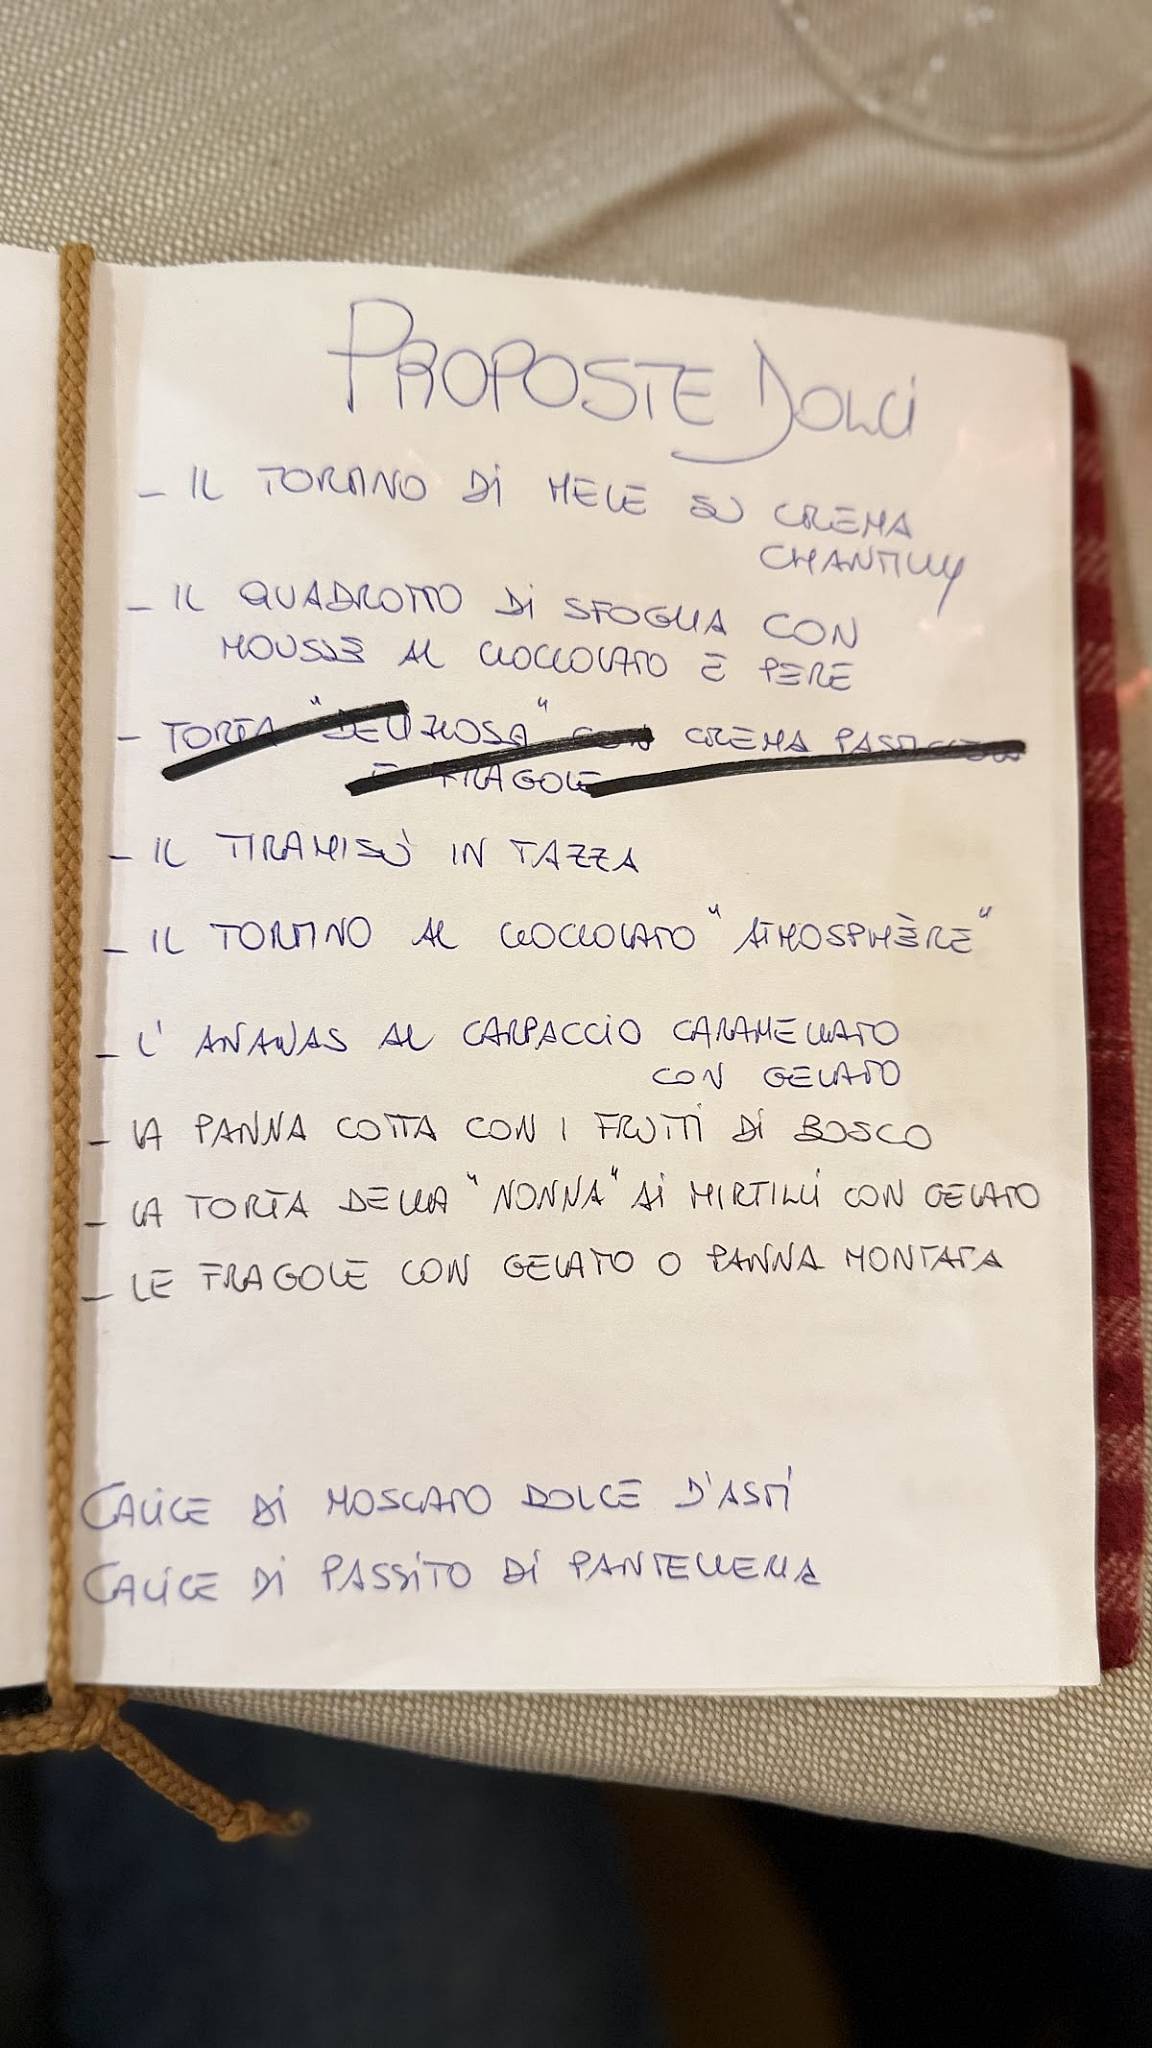 PROPOSTE DOLCI
- IL TORTINO DI MELE SU CREMA
CHANTILLY
- IL QUADROTTO DI SFOGLIA CON
MOUSSE AL CIOCCOLATO E PERE
- TORTA "DELIZIOSA" CON CREMA PASTICCERA
E FRAGOLE
- IL TIRAMISÙ IN TAZZA
- IL TORTINO AL CIOCCOLATO "ATMOSPHÈRE"
- L'ANANAS AL CARPACCIO CARAMELLATO
CON GELATO
- LA PANNA COTTA CON I FRUTTI DI BOSCO
- LA TORTA DELLA "NONNA" AI MIRTILLI CON GELATO
- LE FRAGOLE CON GELATO O PANNA MONTATA
CALICE DI MOSCATO DOLCE D'ASTI
CALICE DI PASSITO DI PANTELLERIA